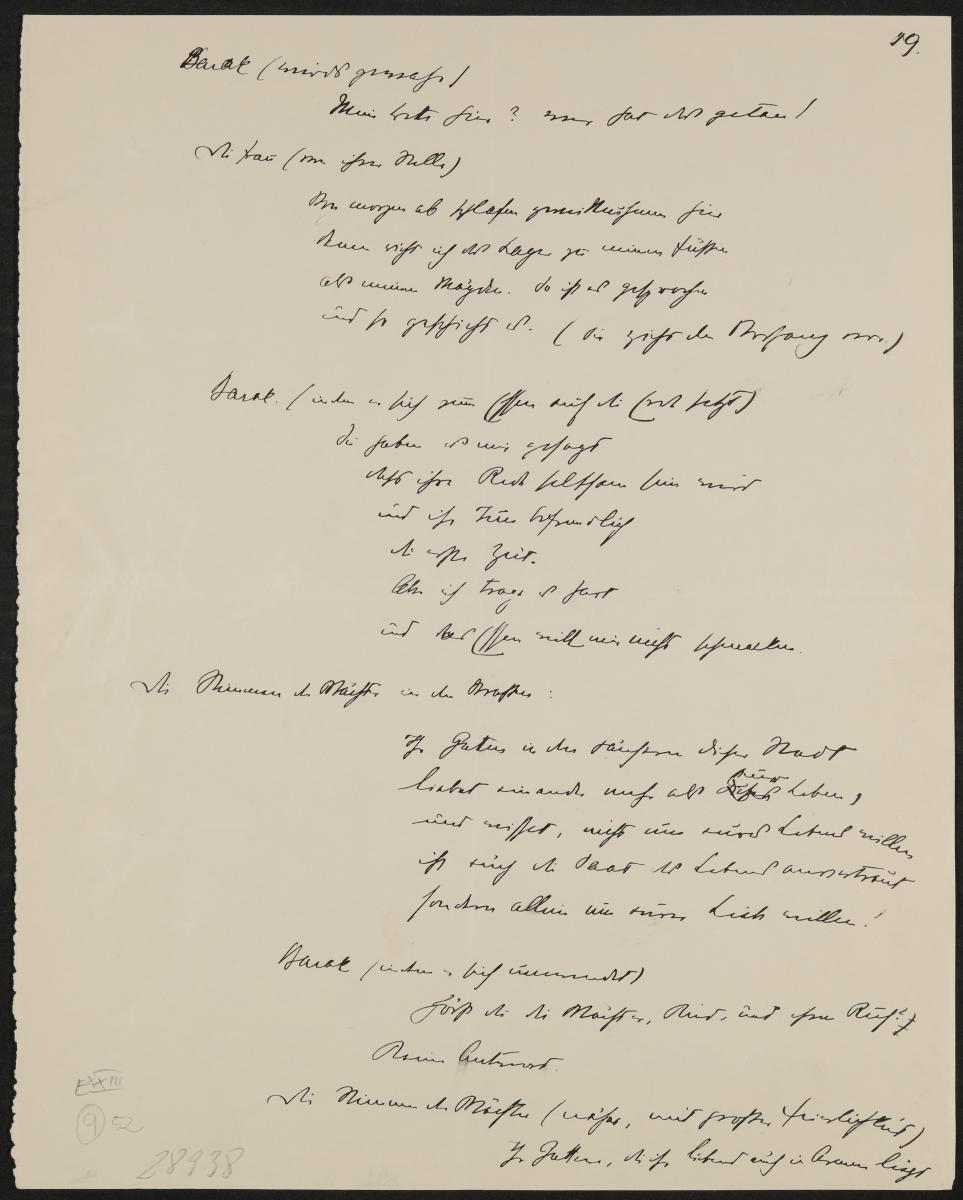 19.
Barak (wird's gewahr)
Mein Bette hier? wer hat das getan!
die Frau (von ihrer Stelle)
Von morgen ab schlafen zwei Muhmen hier
denen richt ich das Lager zu meinen Füssen
als meinen Mägden. So ist es gesprochen
und so geschieht es. (Sie zieht den Vorhang vor.)
Barak. (indem er sich zum Essen auf die Erde setzt)
Sie haben es mir gesagt
dass ihre Rede seltsam sein wird
und ihr Tun befremdlich
die erste Zeit.
Aber ich trage es hart
und das Essen will mir nicht schmecken.
die Stimmen der Wächter in den Strassen:
Ihr Gatten in den Häusern dieser Stadt
liebet einander mehr als euer Leben,
und wisset, nicht um eures Lebens willen
ist euch die Saat des Lebens anvertraut
sondern allein um eurer Liebe willen!
Barak (indem er sich umwendet)
Hörst du die Wächter, Kind, und ihren Ruf?
Keine Antwort.
die Stimmen der Wächter (näher, mit grosser Feierlichkeit)
Ihr Gatten, die ihr liebend euch in Armen liegt
EXXIII
9 52
28938